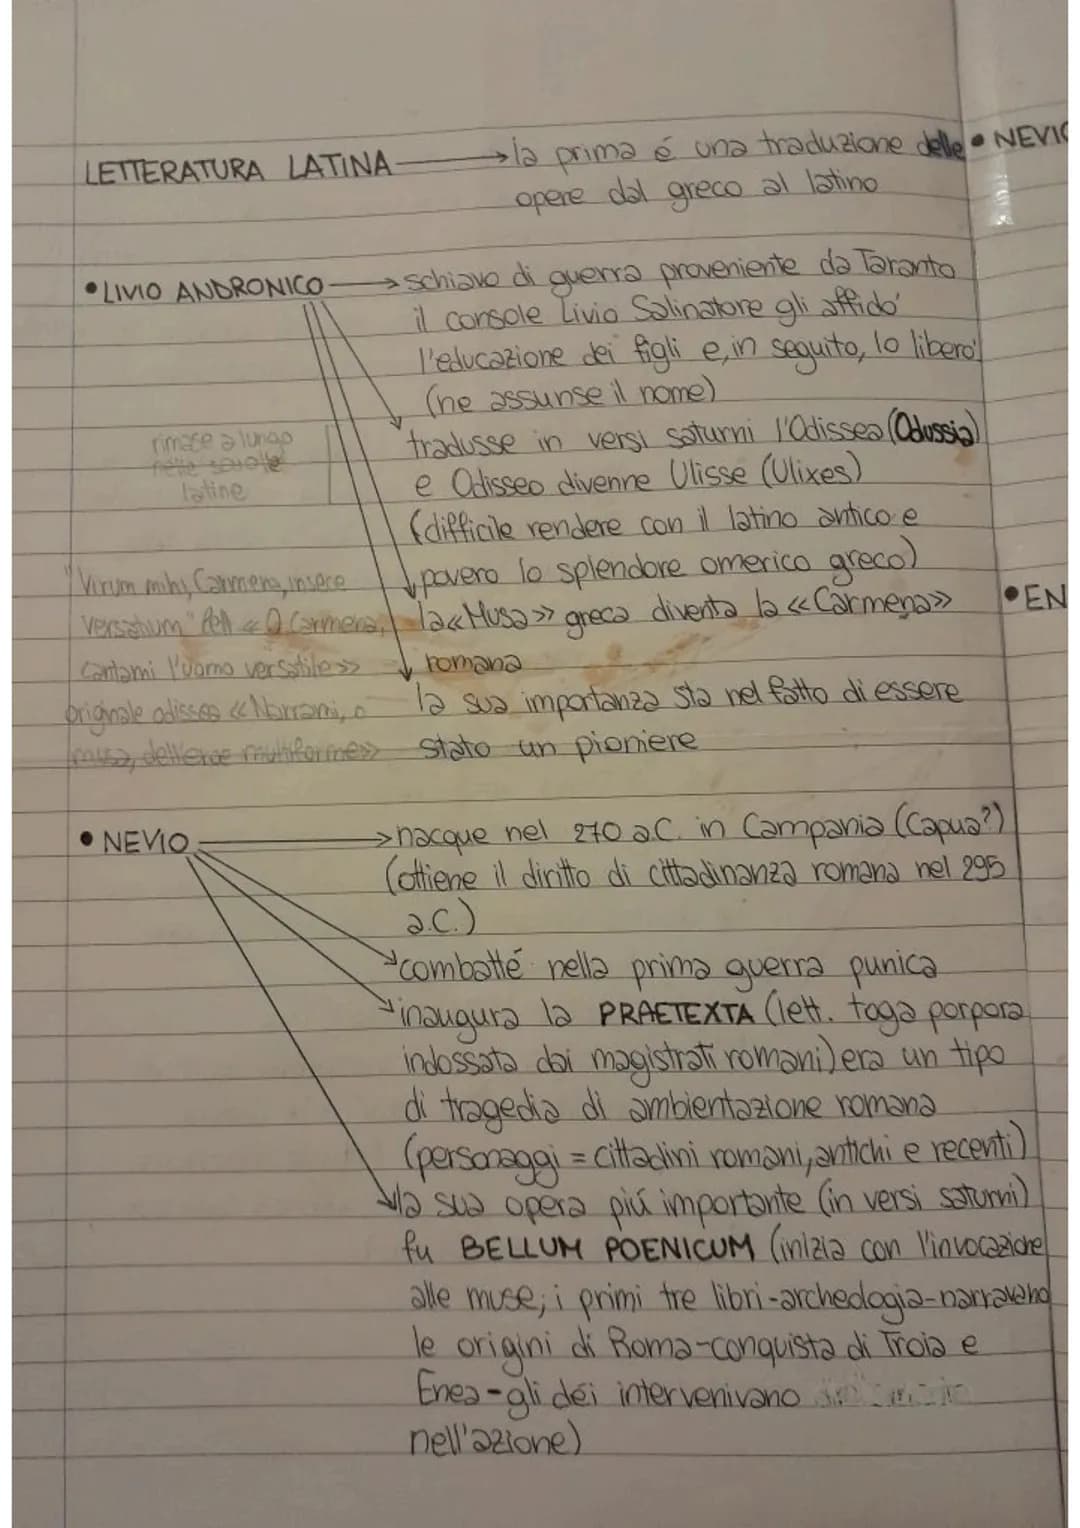 LETTERATURA LATINA → la prima é una traduzione delle
opere dal greco al latino
• LIVIO ANDRONICO → schiavo di guerra proveniente da Taranto
il console Livio Salinatore gli affido'
l'educazione dei figli e, in seguito, lo libero'
(ne assunse il nome)
tradusse in versi saturni l'Odissea (Odussia)
e Odisseo divenne Ulisse (Ulixes)
(difficile rendere con il latino antico e
povero lo splendore omerico greco)
la «Musa» greca diventa la «Carmena»
romana
la sua importanza sta nel fatto di essere
stato un pioniere
rimase a lungo
nelle scuole
latine
"Virum mihi, Carmena, insece
versatum" «O Carmena,
cantami l'uomo versatile»
originale odissea «Narrami, o
musa, dell'eroe multiforme»
• NEVIO → nacque nel 270 a.C. in Campania (Capua?)
(ottiene il diritto di cittadinanza romana nel 295
a.C.)
combatté nella prima guerra punica
inaugura la PRAETEXTA (lett. toga porpora
indossata dai magistrati romani) era un tipo
di tragedia di ambientazione romana
(personaggi = cittadini romani, antichi e recenti)
la sua opera piú importante (in versi saturni)
fu BELLUM POENICUM (inizia con l'invocazione
alle muse; i primi tre libri-archeologia-narravano
le origini di Roma-conquista di Troia e
Enea-gli déi intervenivano
nell'azione)
• NEVIO
• EN